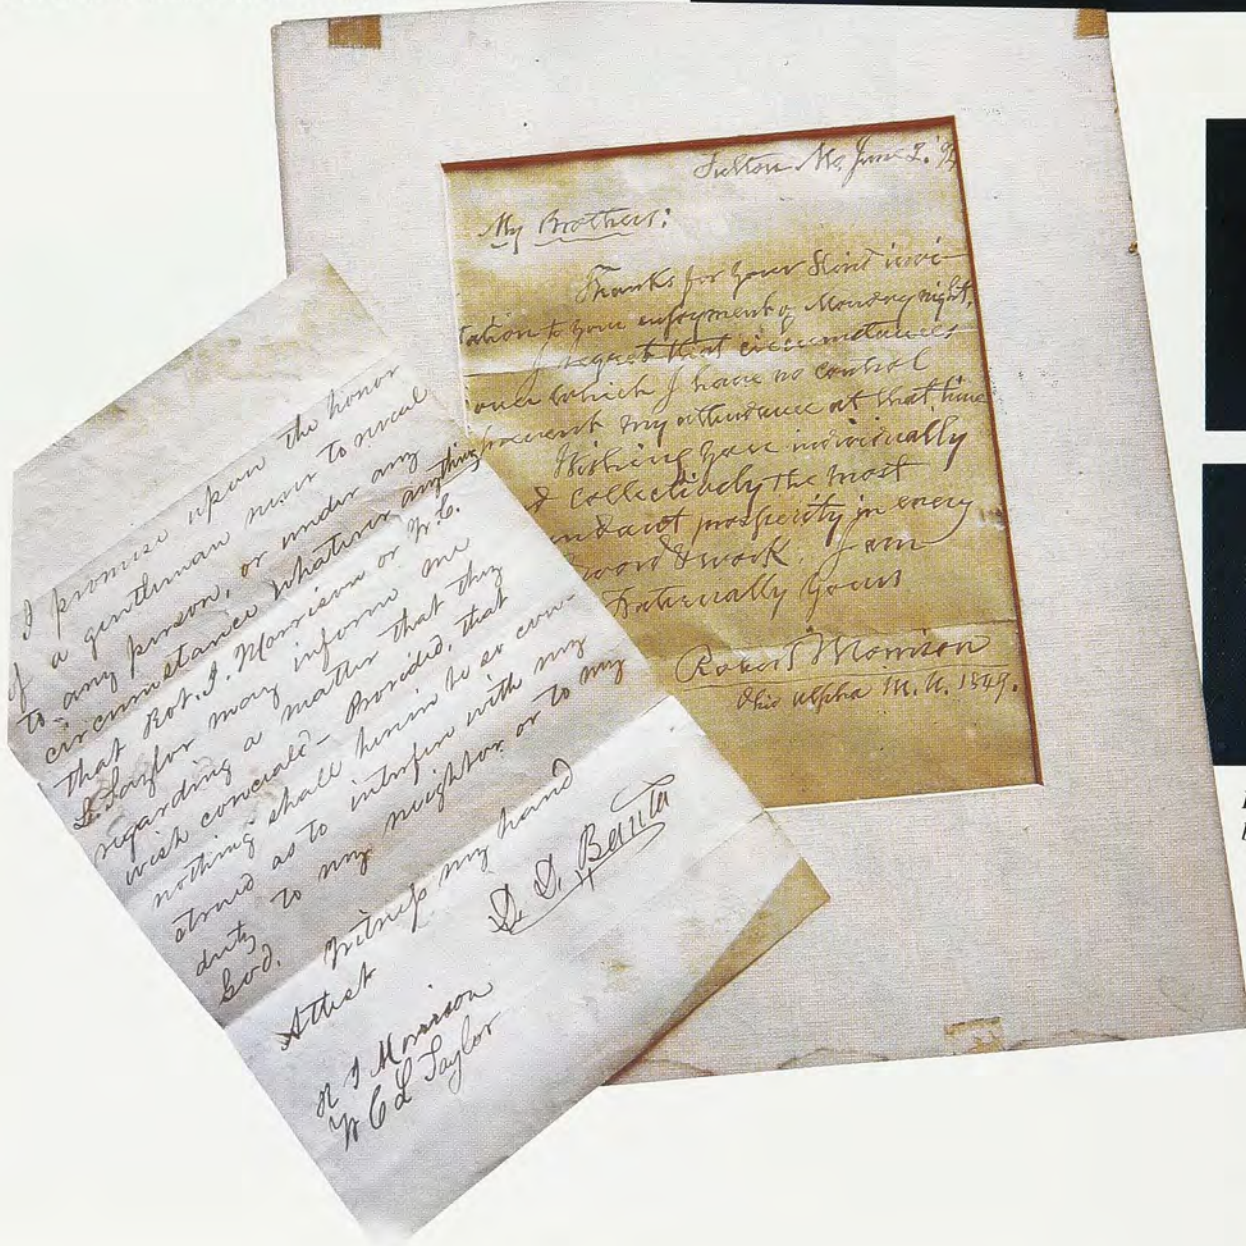 Fulton Mo. June 2. '9
My Brothers:
Thanks for your kind invi-
tation to your enjoyment of Monday night,
I regret that circumstances
over which I have no control
prevent my attendance at that time
Wishing you individually
& collectively the most
prosperity in every
word & work. I am
Fraternally Yours
Robert Morrison
Ohio Alpha M. U. 1849.
I promise upon the honor
of a gentleman never to reveal
to any person, or under any
circumstance whatever anything
that Rob. I. Morrison or W. C.
L. Taylor may inform me
regarding a matter that they
wish conceald - Provided, that
nothing shall herein be so con-
strued as to interfere with my
duty to my neighbor or to my
God.
Witness my hand
D. D. Banta
Attest
R I Morrison
W C L Taylor